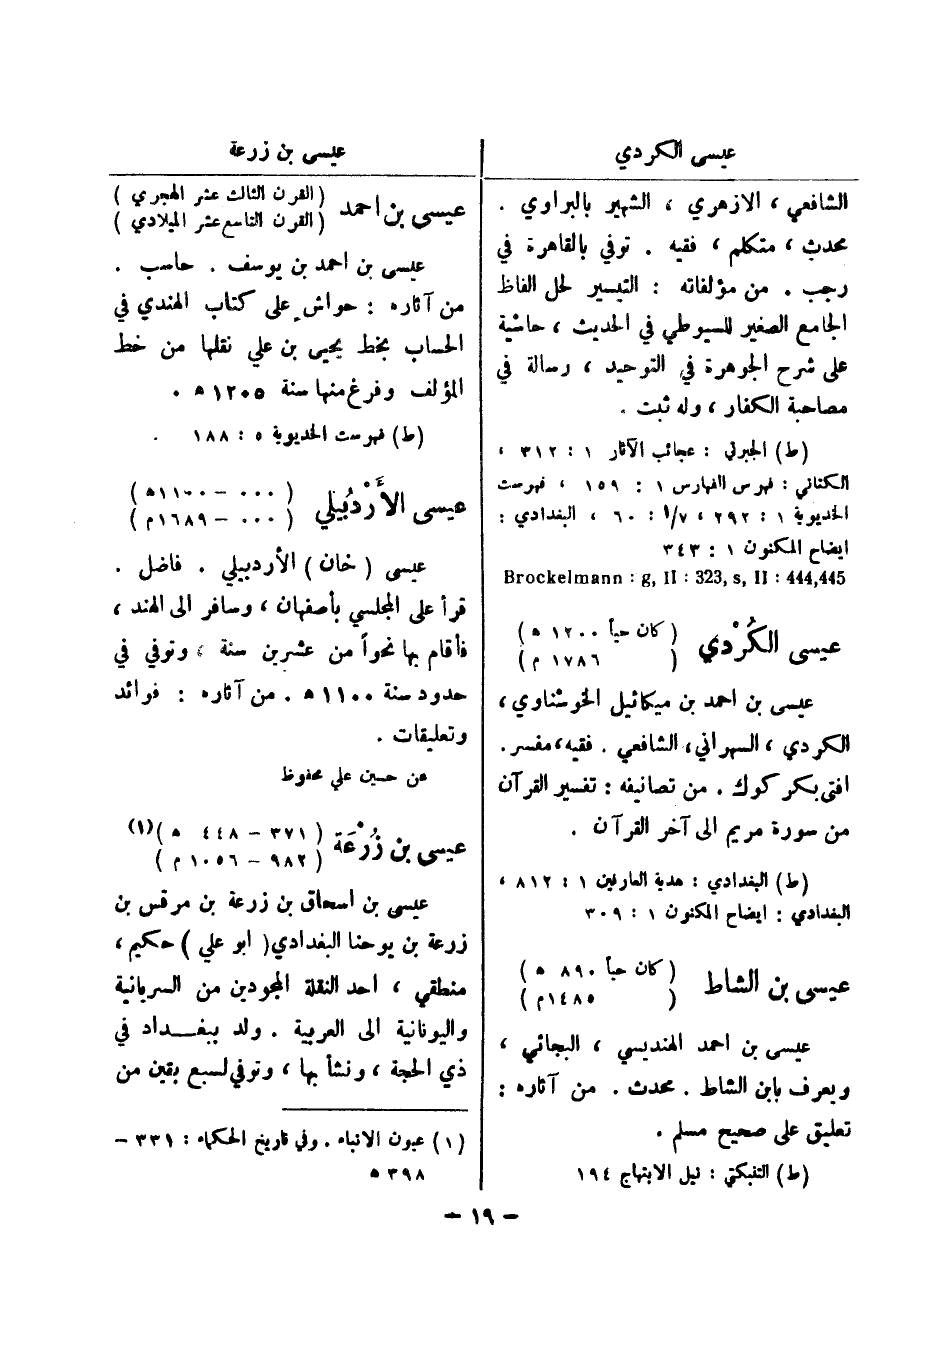 عيسى الكردي
الشافعي ، الازهري ، الشهير بالبراوي .
محدث ، متكلم ، فقيه . توفي بالقاهرة في
رجب . من مؤلفاته : التيسير لحل الفاظ
الجامع الصغير للسيوطي في الحديث ، حاشية
على شرح الجوهرة في التوحيد ، رسالة في
مصاحبة الكفار ، وله ثبت .
(ط) الجبرتي : عجائب الآثار ١ : ٣١٢ ،
الكتاني : فهرس الفهارس ١ : ١٥٩ ، فهرست
الخديوية ١ : ٢٩٢ ، ٧/١ : ٦٠ ، البغدادي :
ايضاح المكنون ١ : ٣٤٣
Brockelmann : g, II : 323, s, II : 444,445
عيسى الكُرْدي ( كان حياً ١٢٠٠ ه )
( ١٧٨٦ م )
عيسى بن احمد بن ميكائيل الخوشناوي ،
الكردي ، السهراني ، الشافعي . فقيه ، مفسر .
افتى بكركوك . من تصانيفه : تفسير القرآن
من سورة مريم الى آخر القرآن .
(ط) البغدادي : هدية العارفين ١ : ٨١٢ ،
البغدادي : ايضاح المكنون ١ : ٣٠٩
عيسى بن الشاط ( كان حياً ٨٩٠ ه )
( ١٤٨٥م )
عيسى بن احمد الهنديسي ، البجائي ،
ويعرف بابن الشاط . محدث . من آثاره :
تعليق على صحيح مسلم .
(ط) التنبكتي : نيل الابتهاج ١٩٤
عيسى بن زرعة
عيسى بن احمد ( القرن الثالث عشر الهجري )
( القرن التاسع عشر الميلادي )
عيسى بن احمد بن يوسف . حاسب .
من آثاره : حواش على كتاب الهندي في
الحساب بخط يحيى بن علي نقلها من خط
المؤلف وفرغ منها سنة ١٢٠٥ ه .
(ط) فهرست الخديوية ٥ : ١٨٨ .
عيسى الأَرْدُبيلي ( ٠٠٠ - ١١٠٠ه )
( ٠٠٠ - ١٦٨٩م )
عيسى ( خان ) الأردبيلي . فاضل .
قرأ على المجلسي بأصفهان ، وسافر الى الهند ،
فأقام بها نحواً من عشرين سنة ، وتوفي في
حدود سنة ١١٠٠ ه . من آثاره : فوائد
وتعليقات .
عن حسين علي محفوظ
عيسى بن زُرْعَة ( ٣٧١ - ٤٤٨ ه )(١)
( ٩٨٢ - ١٠٥٦ م )
عيسى بن اسحاق بن زرعة بن مرقس بن
زرعة بن يوحنا البغدادي ( ابو علي ) حكيم ،
منطقي ، احد النقلة المجودين من السريانية
واليونانية الى العربية . ولد ببغداد في
ذي الحجة ، ونشأ بها ، وتوفي لسبع بقين من
(١) عيون الانباء . وفي تاريخ الحكماء : ٣٣١ -
٣٩٨ ه
- ١٩ -